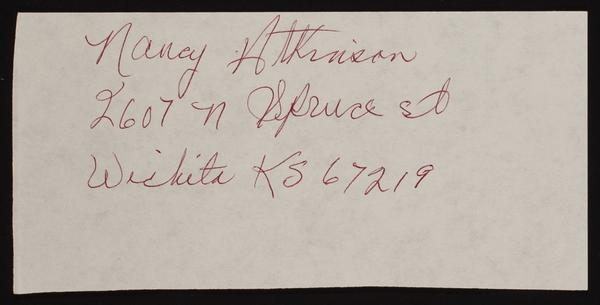 Nancy Atkinson
2607 N Spruce st
Wichita KS 67219